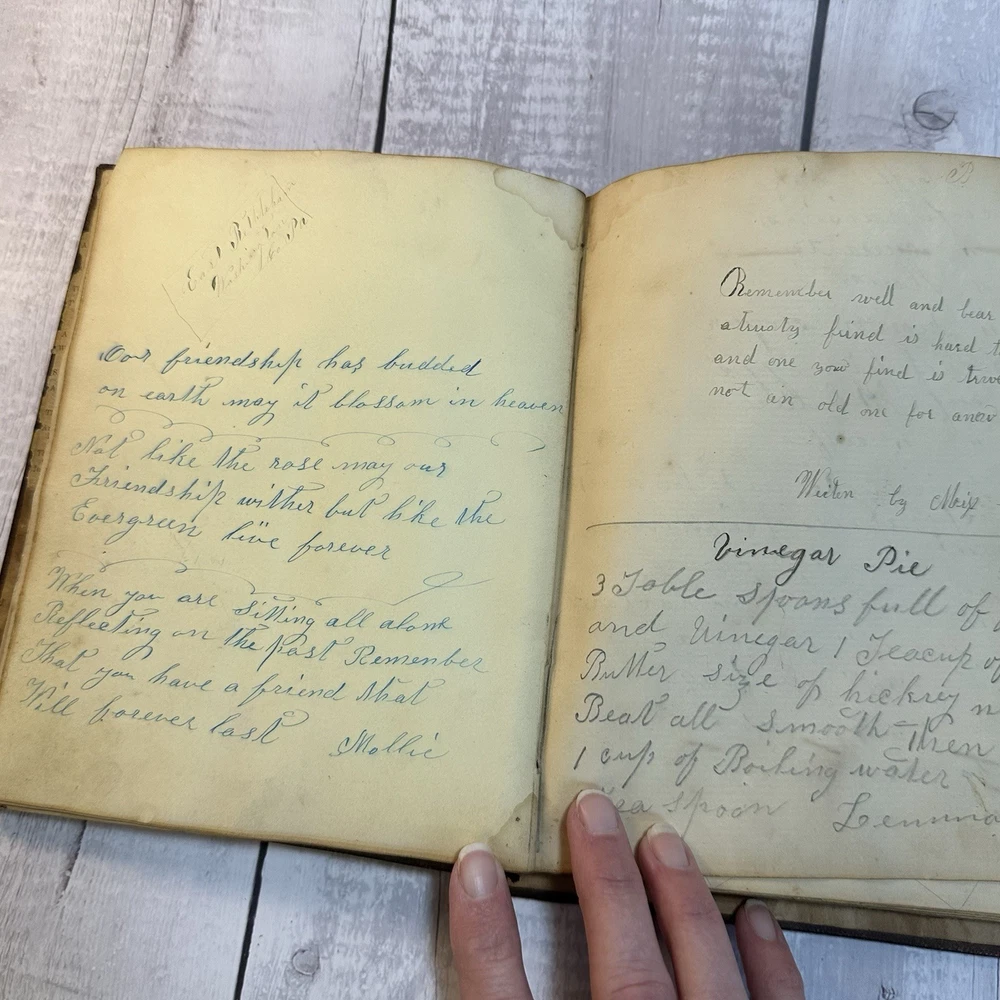 East Bethlehem
Washington
Co Pa
Our friendship has budded
on earth may it blossom in heaven
Not like the rose may our
Friendship wither but like the
Evergreen live forever
When you are sitting all alone
Reflecting on the past Remember
That you have a friend that
Will forever last
Mollie
Remember well and bear
a trusty frind is hard t
and one you find is true
not an old one for anew
Writen by
Vinegar Pie
3 Table spoons full of
and Vinegar 1 Teacup of
Butter size of hickrey n
Beat all smooth - Then
1 cup of Boiling water
Tea spoon Lemmo